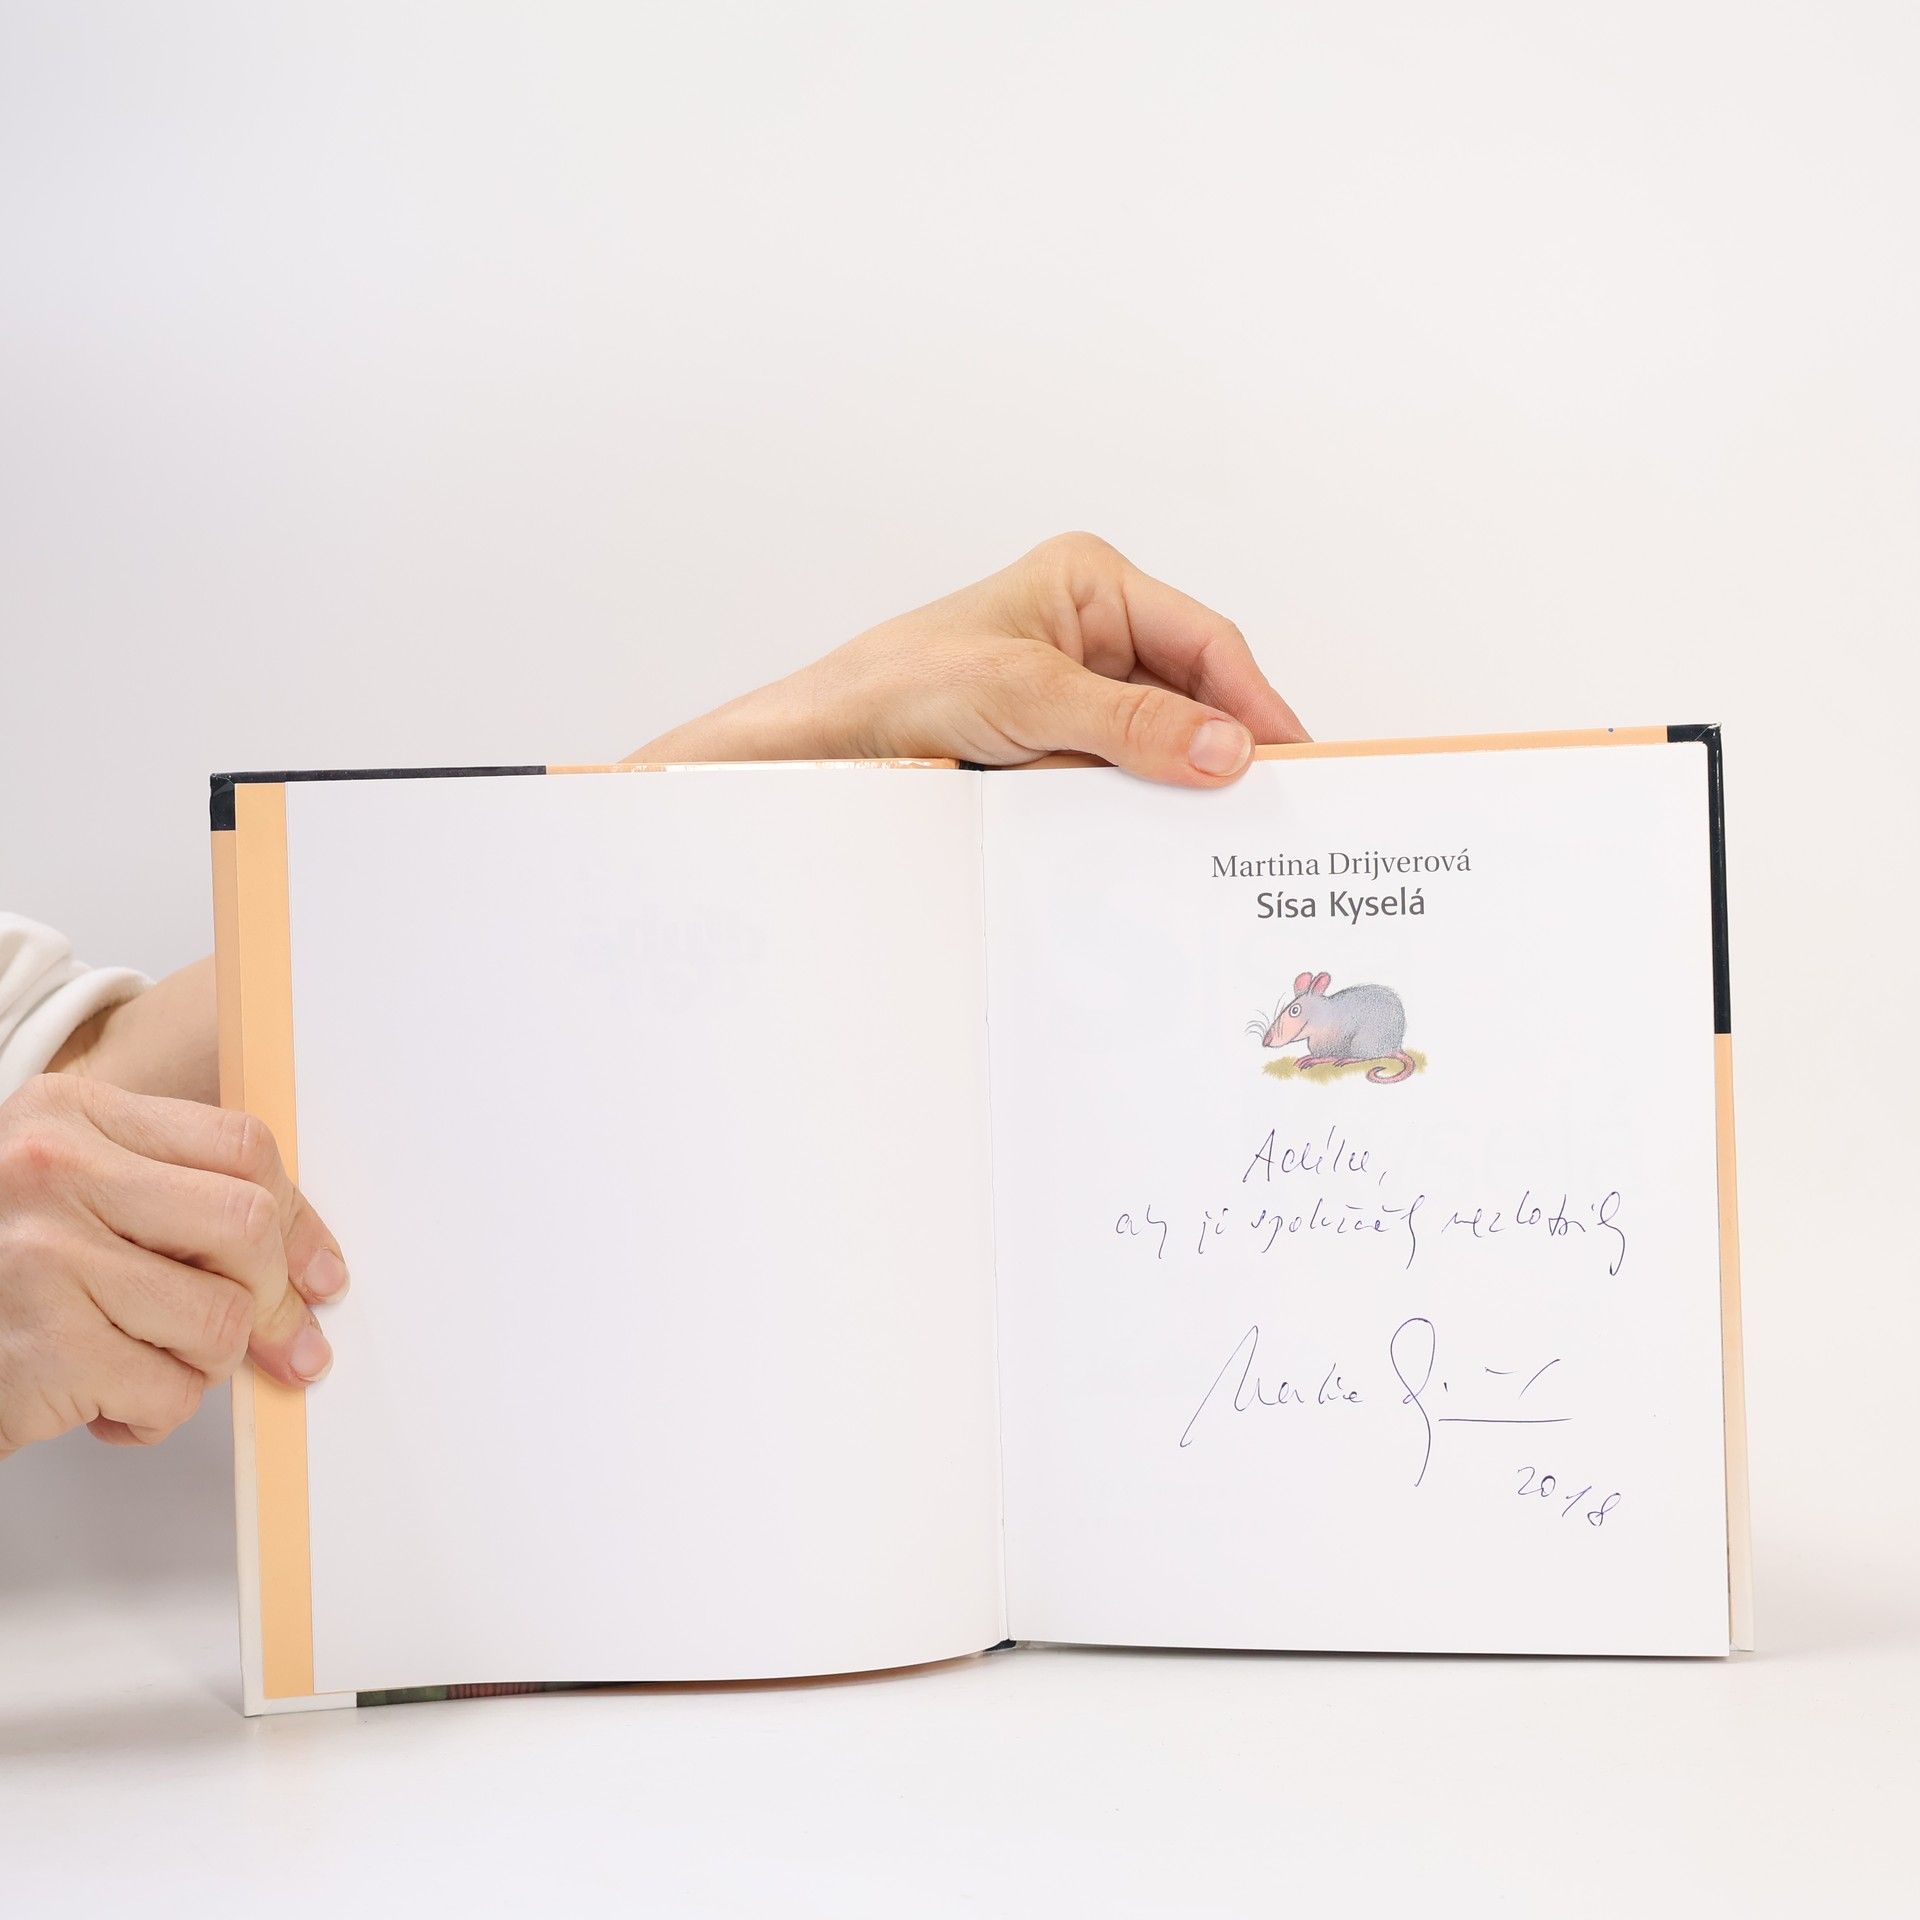 Martina Drijverová
Sísa Kyselá
Adélce,
aby jí spolužáci nezlobili
Martina
2018